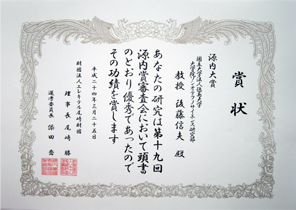 賞状
源内大賞
国立大学法人徳島大学
大学院ソシオテクノサイエンス研究部
教授 後藤信夫 殿
あなたの研究は第十九回
源内賞審査会において頭書
のとおり優秀であったので
その功績を賞します
平成二十四年三月二十五日
財団法人エレキテル尾崎財団
理事長 尾崎 勝
選考委員長